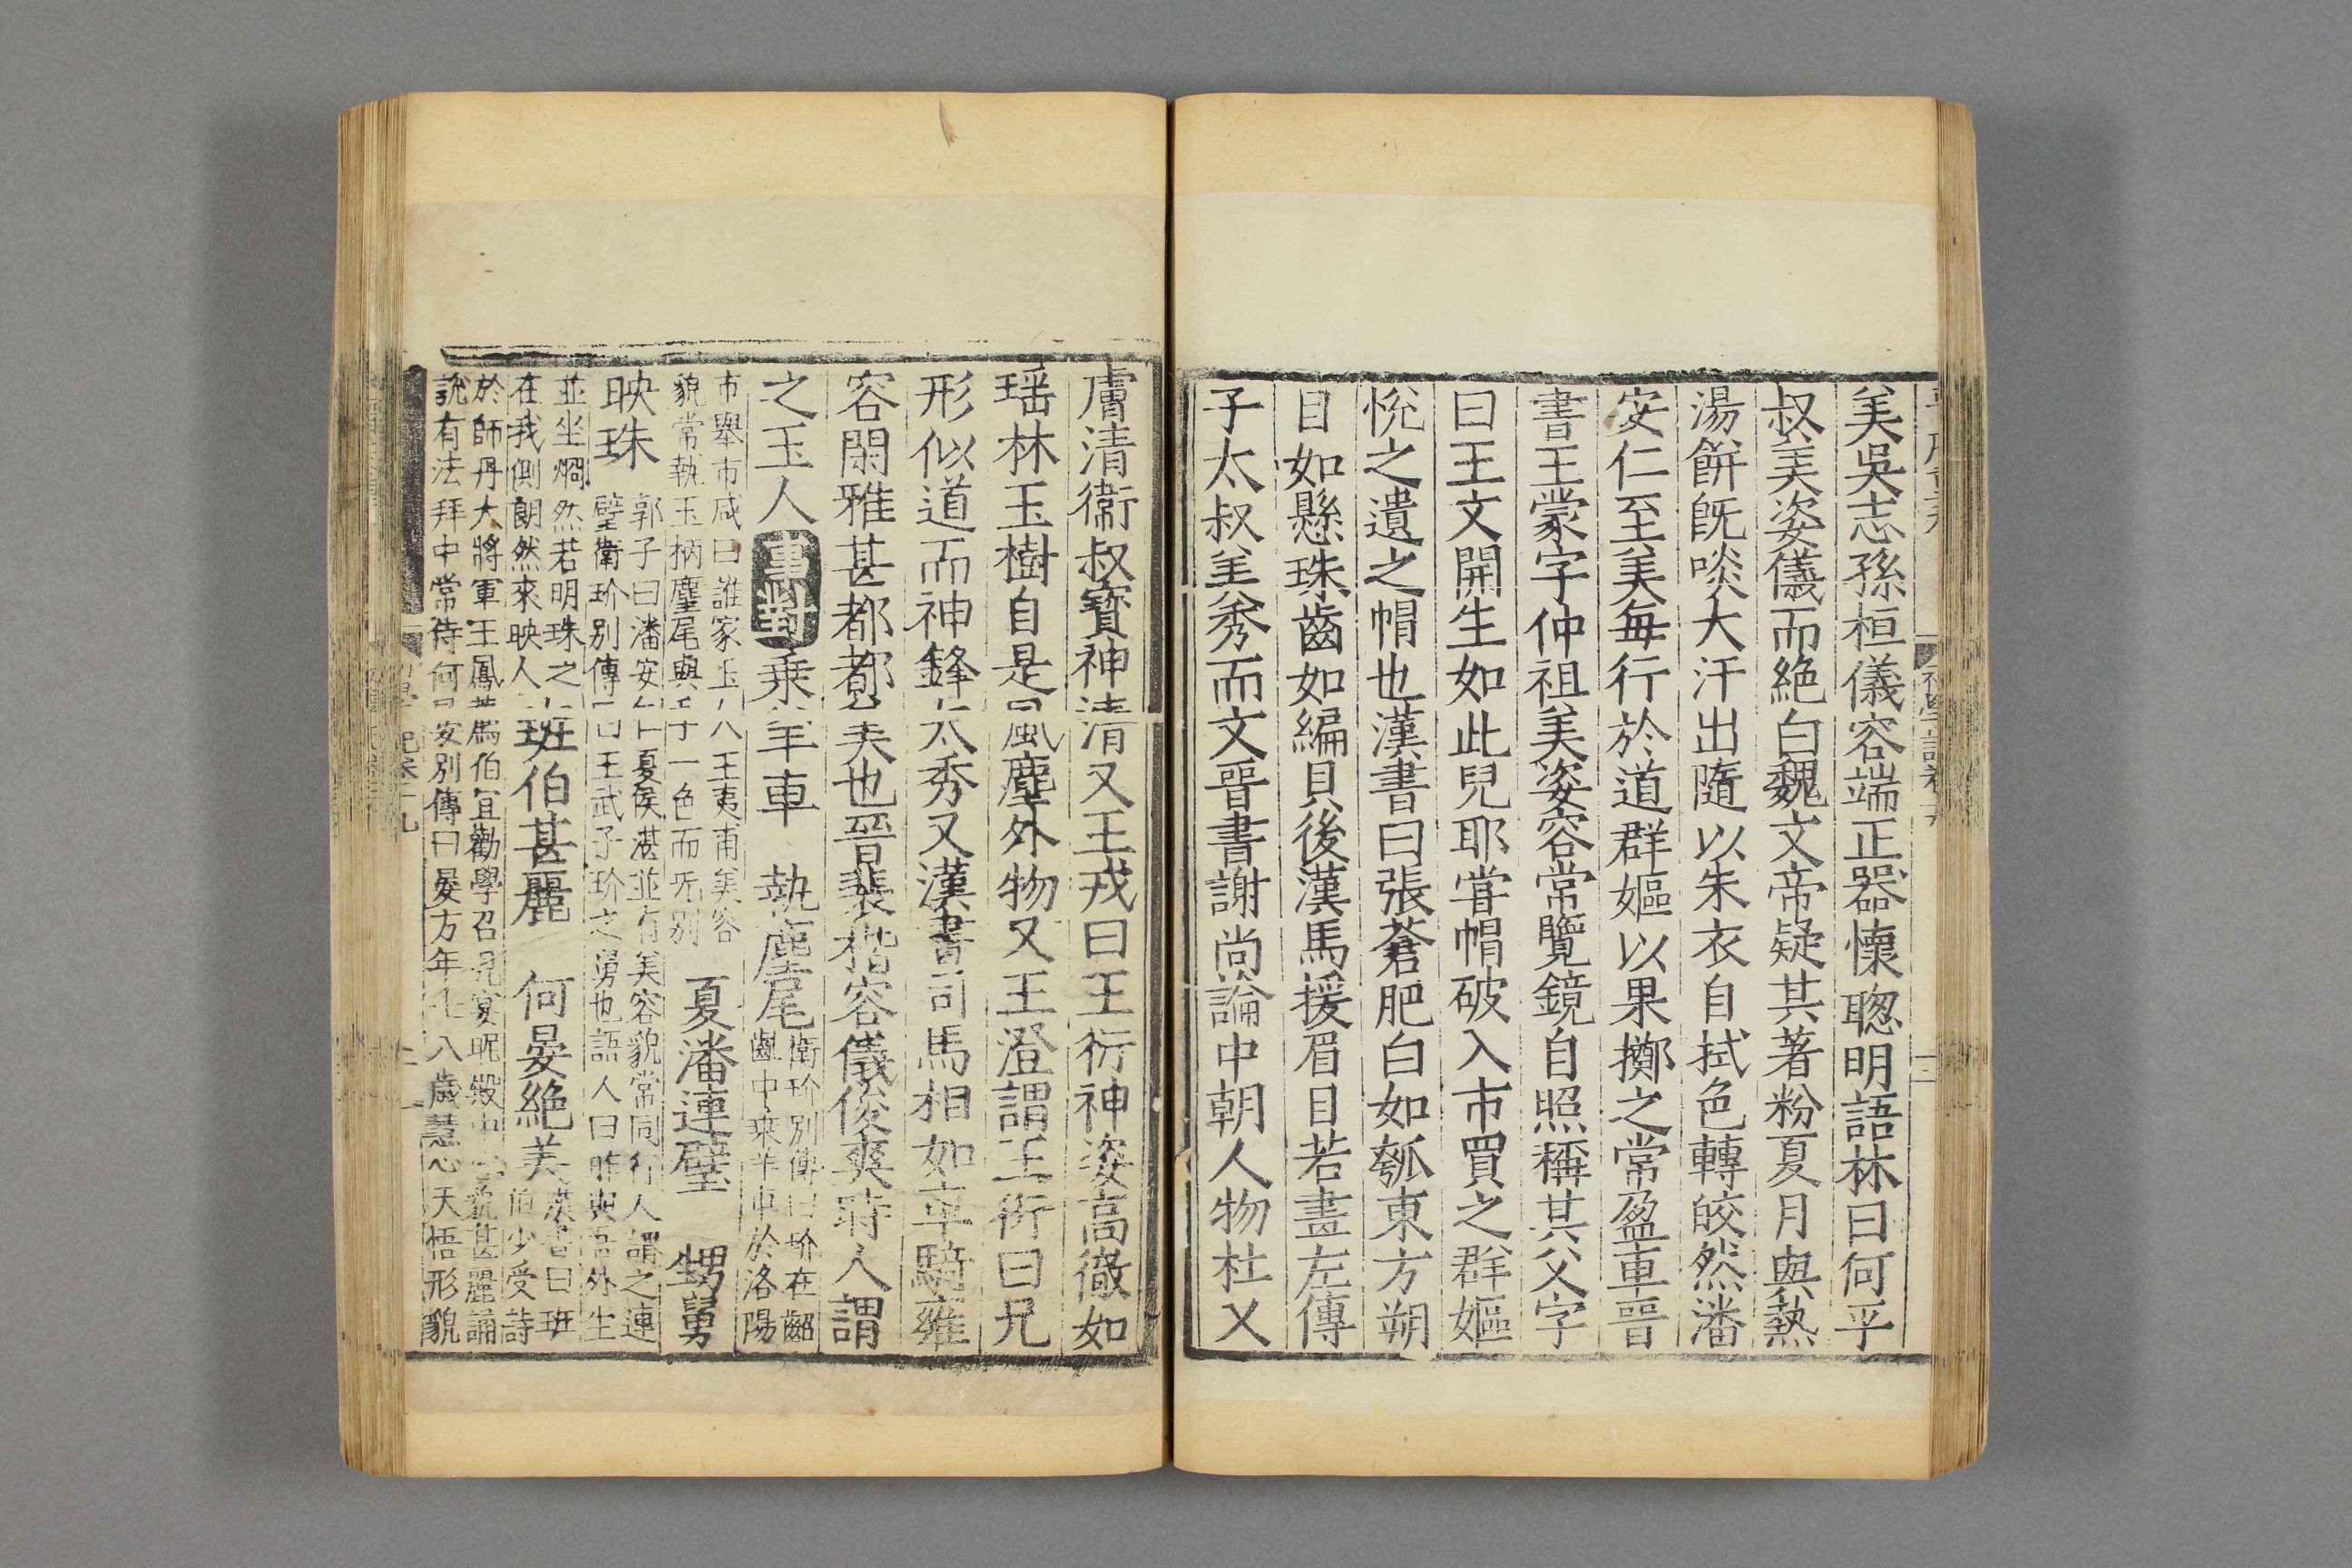 美吳志孫桓儀容端正器懷聦明語林曰何平
叔美姿儀而絶白魏文帝疑其著粉夏月與熱
湯餅旣啖大汗出隨以朱衣自拭色轉皎然潘
安仁至美每行於道群嫗以果擲之常盈車晉
書王蒙字仲祖美姿容常覽鏡自照稱其父字
曰王文開生如此兒耶甞帽破入市買之群嫗
悅之遺之帽也漢書曰張蒼肥白如瓠東方朔
目如懸珠齒如編貝後漢馬援眉目若畫左傳
子太叔美秀而文晉書謝尚論中朝人物杜乂
膚清衞叔寶神清又王戎曰王衍神姿高徹如
瑶林玉樹自是風塵外物又王澄謂王衍曰兄
形似道而神鋒太秀又漢書司馬相如車騎雍
容閑雅甚都都美也晉裴楷容儀俊爽時人謂
之玉人事對乗羊車 執麈尾衛玠別傳曰玠在齠
齓中乘羊車於洛陽
市舉市咸曰誰家玉人王夷甫美容
貌常執玉柄麈尾與手一色而无別 夏潘連璧 甥舅
映珠 郭子曰潘安仁夏侯湛並有美容貌常同行人謂之連
璧衞玠別傳曰王武子玠之舅也語人曰昨與吾外生
並坐烱然若明珠之
在我側朗然來映人 班伯甚麗 何晏絶美漢書曰班
伯少受詩
於師丹大將軍王鳳薦伯宜勸學召見宴昵殿中容貌甚麗誦
說有法拜中常侍何晏別傳曰晏方年七八歲慧心天悟形貌